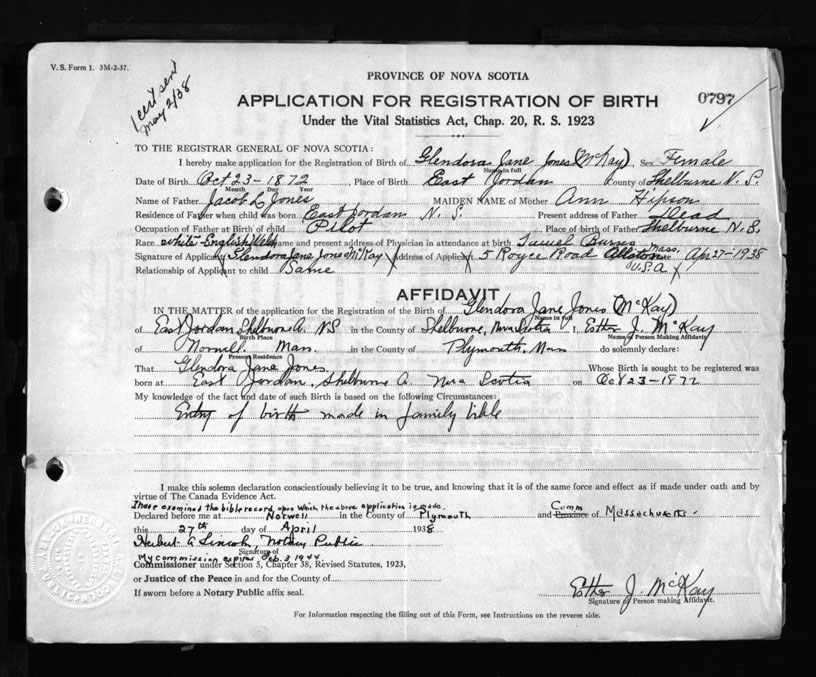 V. S. Form 1. 3M-2-37.
1 cert sent
May 2/38
PROVINCE OF NOVA SCOTIA
APPLICATION FOR REGISTRATION OF BIRTH 0797
Under the Vital Statistics Act, Chap. 20, R. S. 1923
TO THE REGISTRAR GENERAL OF NOVA SCOTIA:
I hereby make application for the Registration of Birth of Glendora Jane Jones (McKay), Sex Female
Name in full
Date of Birth Oct 23-1872, Place of Birth East Jordan County of Shelburne N. S.
Month Day Year
Name of Father Jacob L Jones MAIDEN NAME of Mother Ann Hipson
Residence of Father when child was born East Jordan N. S. Present address of Father Dead
Occupation of Father at Birth of Child Pilot Place of birth of Father Shelburne N.S.
Race white-English Welsh Name and present address of Physician in attendance at birth Burns
Signature of Applicant Glendora Jane Jones McKay Address of Applicant 5 Royce Road Allston Mass. Date Apr 27-1938
U.S.A
Relationship of Applicant to child Same
AFFIDAVIT
IN THE MATTER of the application for the Registration of the Birth of Glendora Jane Jones (McKay)
Name in full
of East Jordan Shelburne Co. NS in the County of Shelburne, Nova Scotia I, Esther J. McKay
Birth Place Name of Person Making Affidavit
of Norwell Mass. in the County of Plymouth, Mass do solemnly declare:
Present Residence
That Glendora Jane Jones Whose Birth is sought to be registered was
born at East Jordan, Shelburne Co. Nova Scotia on Oct 23-1872
My knowledge of the fact and date of such Birth is based on the following Circumstances:
Entry of birth made in family bible
I make this solemn declaration conscientiously believing it to be true, and knowing that it is of the same force and effect as if made under oath and by
virtue of The Canada Evidence Act.
I have examined the bible record, upon which the above application is made.
Declared before me at Norwell in the County of Plymouth and Province of Massachusetts.
Comm
this 27th day of April 1938
Herbert A Lincoln, Notary Public
Signature of
My commission expires Feb. 3 1944
Commissioner under Section 5, Chapter 38, Revised Statutes, 1923,
or Justice of the Peace in and for the County of
If sworn before a Notary Public affix seal.
Esther J. McKay
Signature of Person making Affidavit.
For Information respecting the filling out of this Form, see Instructions on the reverse side.